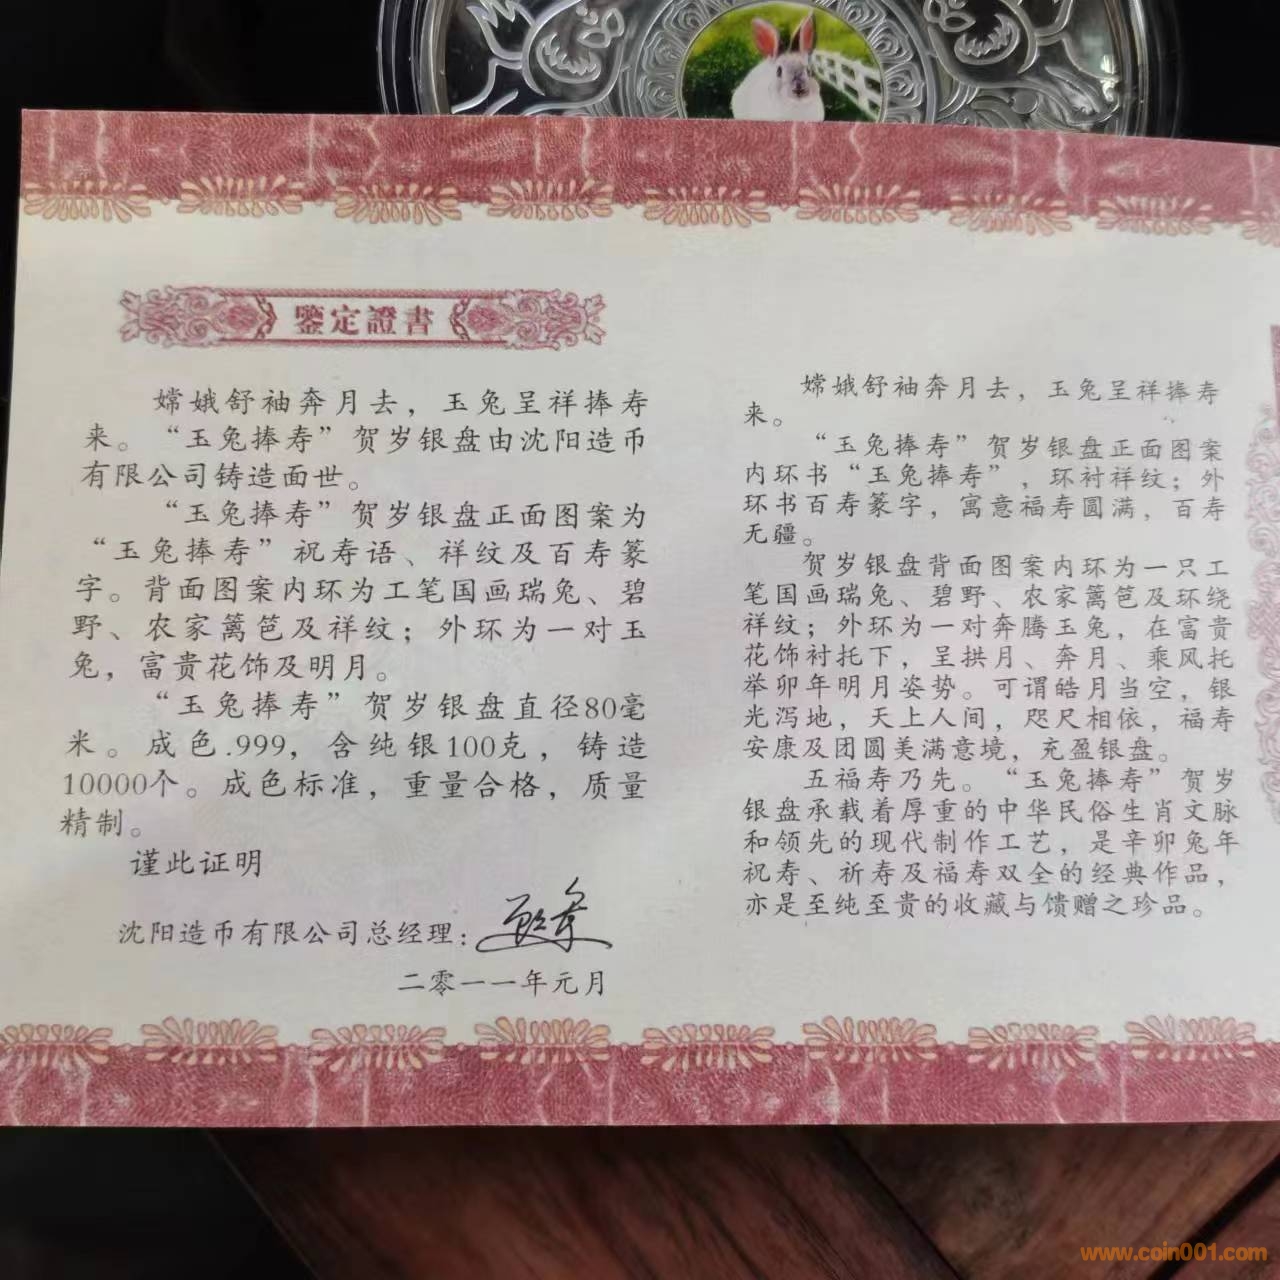 鑒定證書
嫦娥舒袖奔月去，玉兔呈祥捧寿
来。“玉兔捧寿”贺岁银盘由沈阳造币
有限公司铸造面世。
“玉兔捧寿”贺岁银盘正面图案为
“玉兔捧寿”祝寿语、祥纹及百寿篆
字。背面图案内环为工笔国画瑞兔、碧
野、农家篱笆及祥纹；外环为一对玉
兔，富贵花饰及明月。
“玉兔捧寿”贺岁银盘直径80毫
米。成色.999，含纯银100克，铸造
10000个。成色标准，重量合格，质量
精制。
谨此证明
沈阳造币有限公司总经理：
二零一一年元月
嫦娥舒袖奔月去，玉兔呈祥捧寿
来。
“玉兔捧寿”贺岁银盘正面图案
内环书“玉兔捧寿”，环衬祥纹；外
环书百寿篆字，寓意福寿圆满，百寿
无疆。
贺岁银盘背面图案内环为一只工
笔国画瑞兔、碧野、农家篱笆及环绕
祥纹；外环为一对奔腾玉兔，在富贵
花饰衬托下，呈拱月、奔月、乘风托
举卯年明月姿势。可谓皓月当空，银
光泻地，天上人间，咫尺相依，福寿
安康及团圆美满意境，充盈银盘。
五福寿乃先。“玉兔捧寿”贺岁
银盘承载着厚重的中华民俗生肖文脉
和领先的现代制作工艺，是辛卯兔年
祝寿、祈寿及福寿双全的经典作品，
亦是至纯至贵的收藏与馈赠之珍品。
www.coin001.com